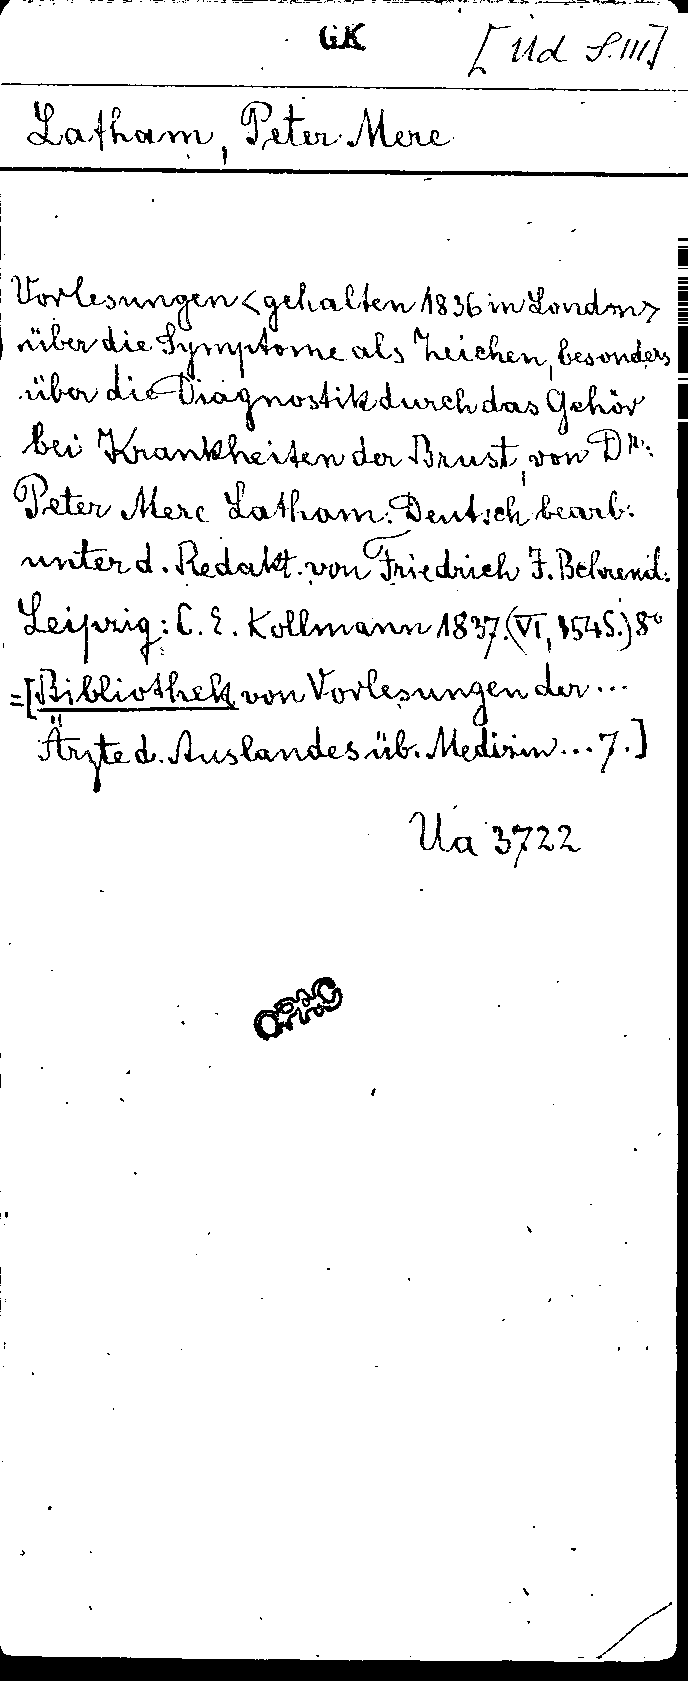 GK [Ud S.III]
Latham, Peter Mere
Vorlesungen <gehalten 1836 in London>
über die Symptome als Zeichen, besonders
über die Diagnostik durch das Gehör
bei Krankheiten der Brust, von Dr.
Peter Mere Latham. Deutsch bearb.
unter d. Redakt. von Friedrich J. Behrend.
Leipzig: C. E. Kollmann 1837. (VI, 154 S.) 8°
=[Bibliothek von Vorlesungen der ...
Ärzte d. Auslandes üb. Medizin ... 7.]
Ua 3722
OPAC